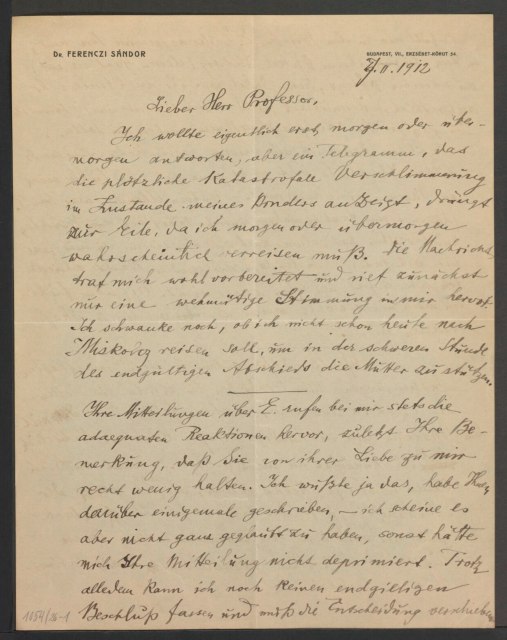 Dr. FERENCZI SÁNDOR
BUDAPEST, VII., ERZSÉBET-KÖRUT 54.
7.II.1912
Lieber Herr Professor,
Ich wollte eigentlich erst morgen oder über-
morgen antworten, aber ein Telegramm, das
die plötzliche Katastrofale Verschlimmerung
im Zustande meines Bruders anzeigt, drängt
zur Eile, da ich morgen oder übermorgen
wahrscheinlich verreisen muß. Die Nachricht
traf mich wohl vorbereitet und rief zunächst
nur eine wehmütige Stimmung in mir hervor.
Ich schwanke noch, ob ich nicht schon heute nach
Miskolcz reisen soll, um in der schweren Stunde
des endgültigen Abschieds die Mutter zu stützen.
Ihre Mitteilungen über E. rufen bei mir stets die
adaequaten Reaktionen hervor, zuletzt Ihre Be-
merkung, daß Sie von ihrer Liebe zu mir
recht wenig halten. Ich wußte ja das, habe Ihnen
darüber einigemale geschrieben, – ich scheine es
aber nicht ganz geglaubt zu haben, sonst hätte
mich Ihre Mitteilung nicht deprimiert. Trotz
alledem kann ich noch keinen endgiltigen
Beschluß fassen und muß die Entscheidung verschieben